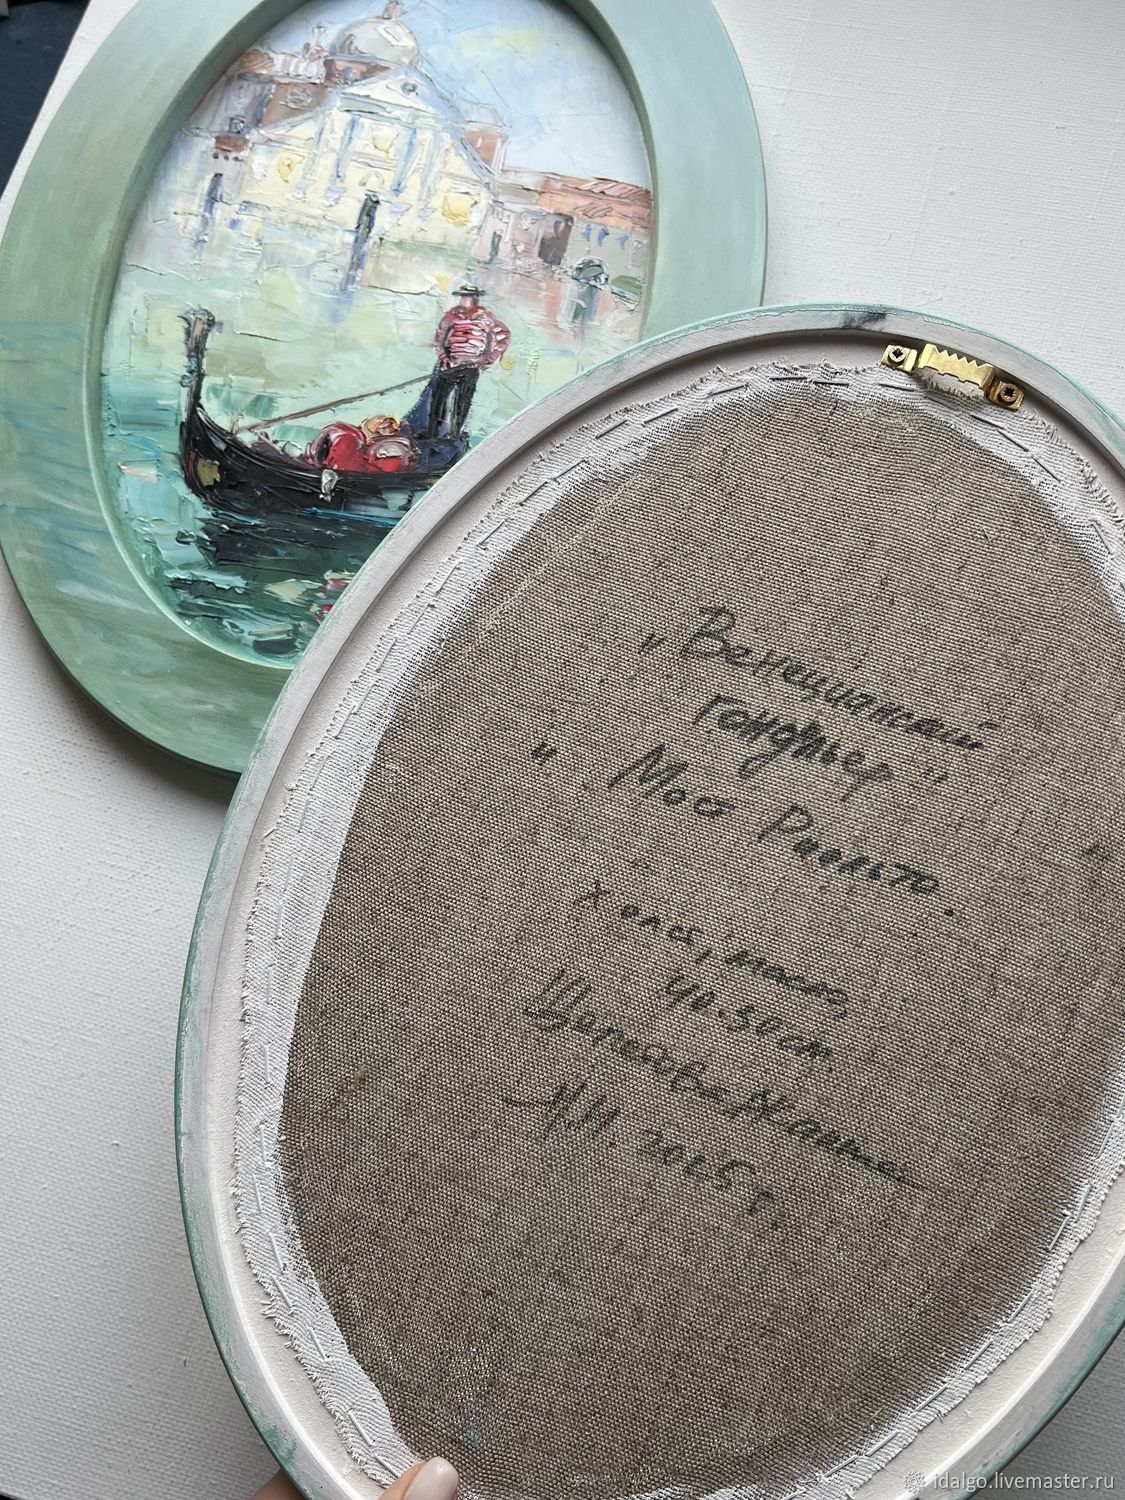 "Венецианский
гондольер"
" Мост Риальто. "
холст, масло,
40.50 см.
Жанна
М.Н. 2025 г.
idalgo.livemaster.ru